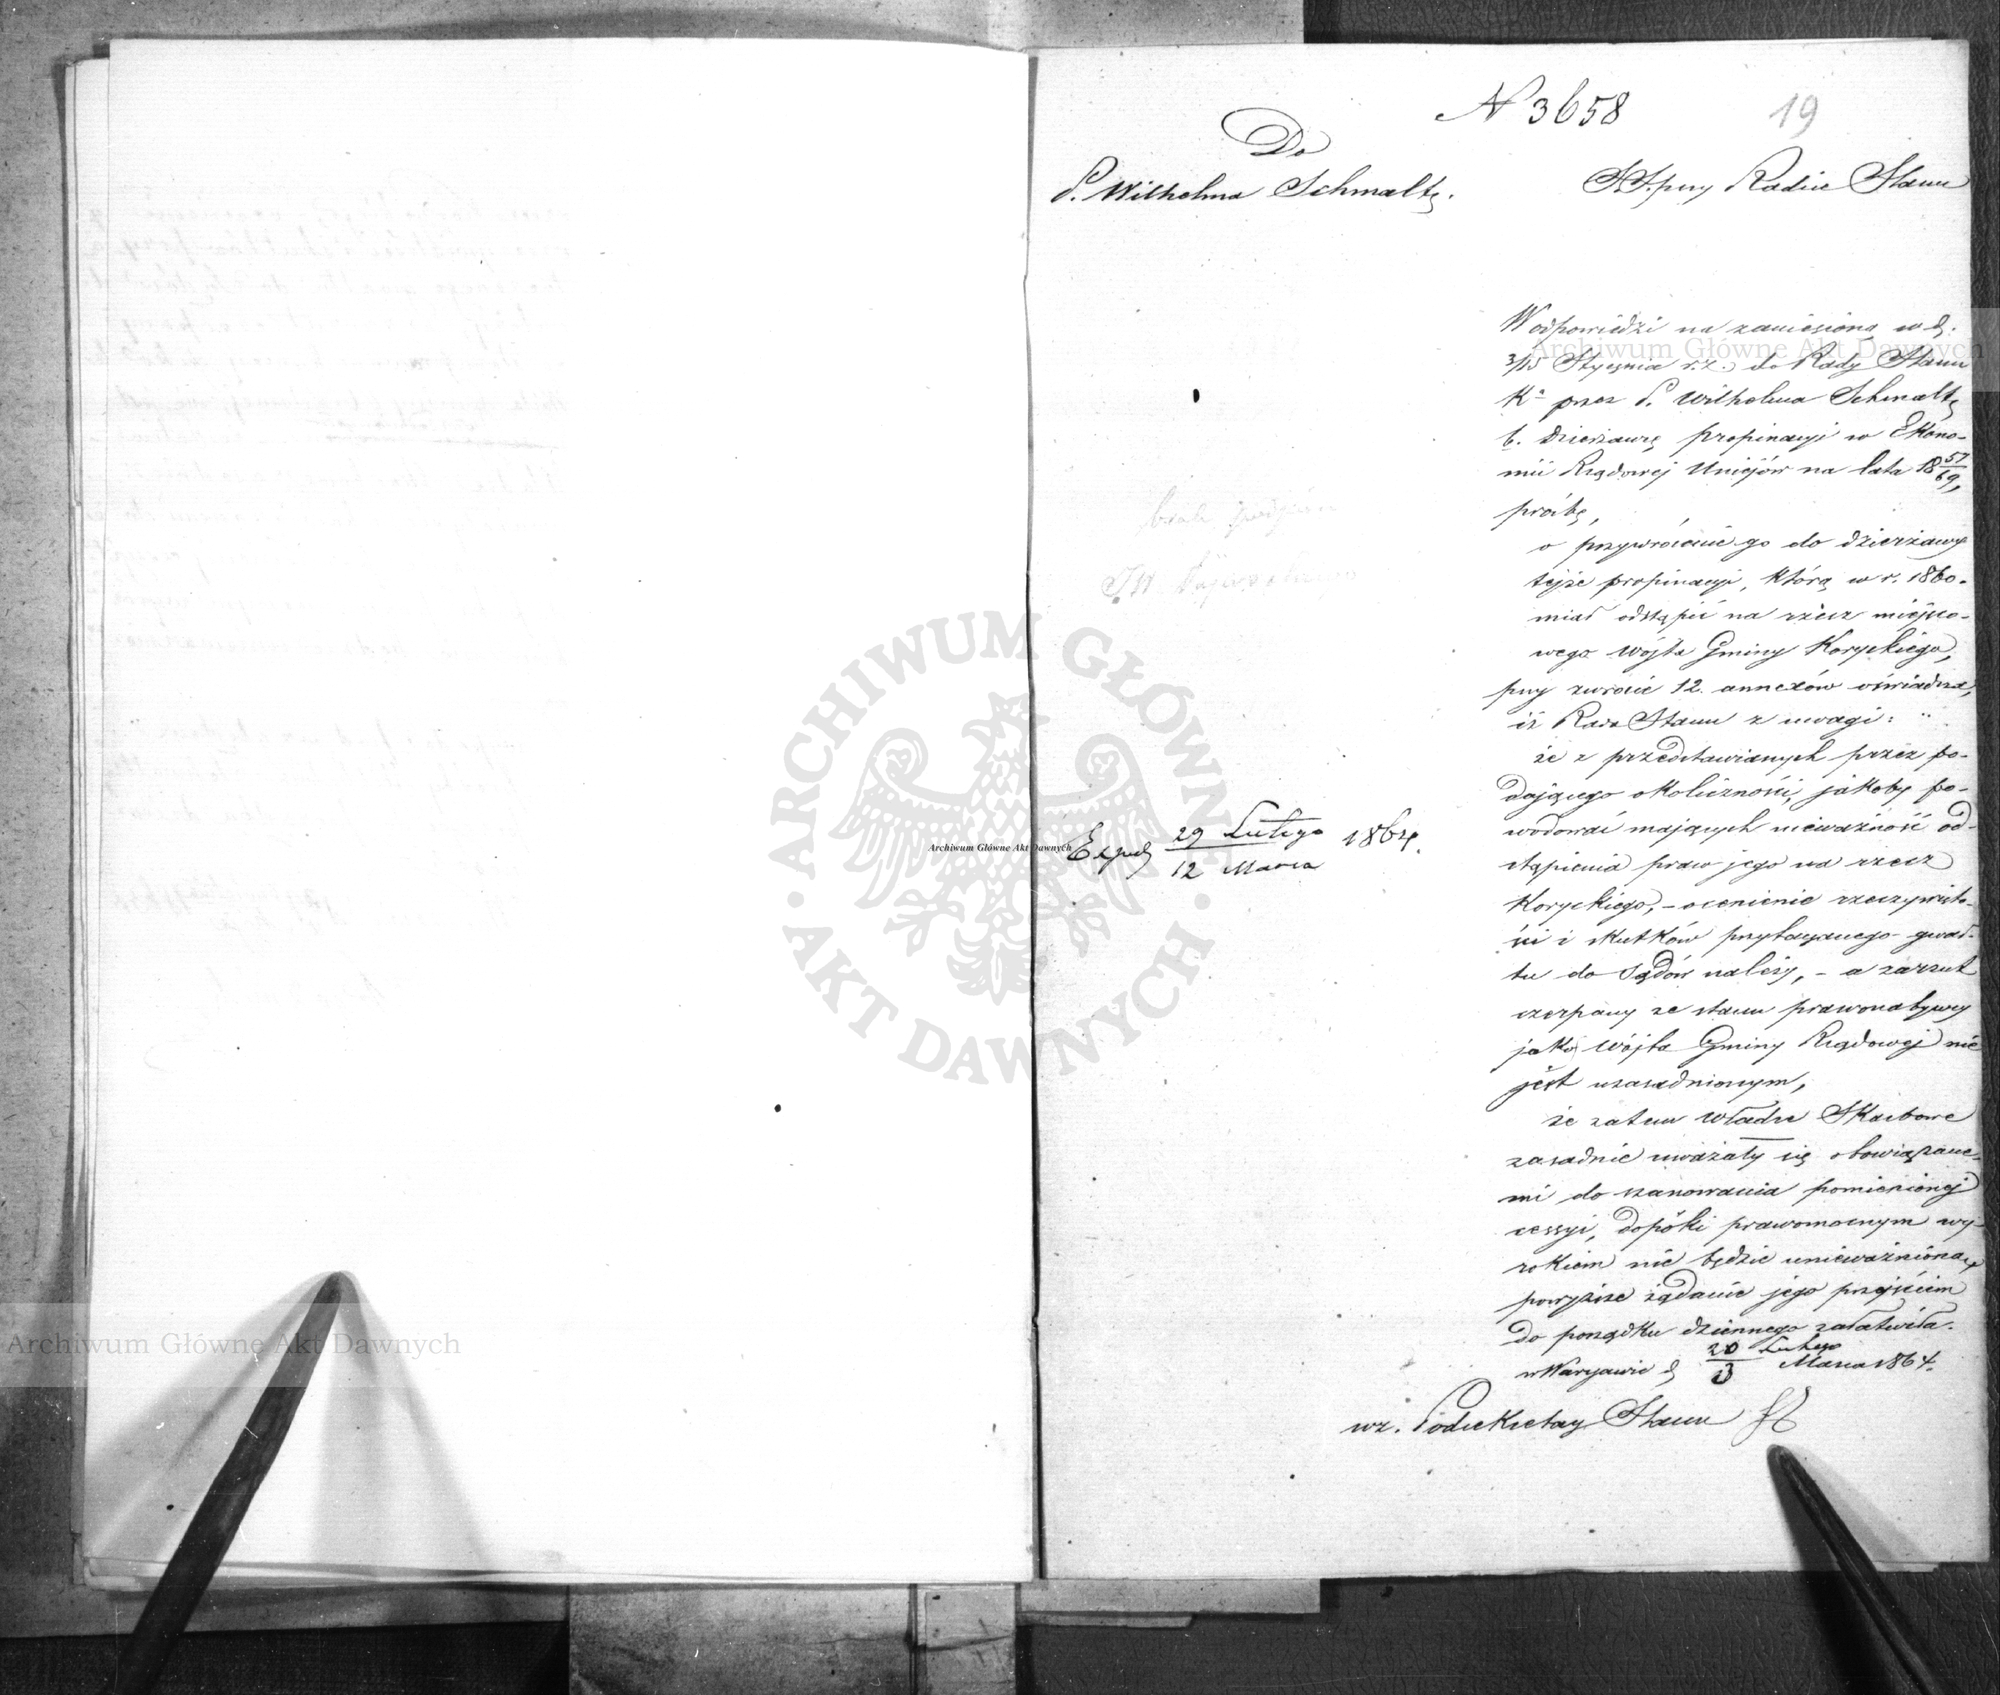 N 3658
19
Do
P. Wilhelma Schmaltz.
przy Radzie Stanu
W odpowiedzi na zaniesioną w d.
3/15 Stycznia r.z. do Rady Stanu
Kr. przez P. Wilhelma Schmaltz
b. dzierżawcę propinacyi w Ekono-
mii Rządowej Uniejów na lata 18 57/69,
prośbę,
o przywrócenie go do dzierżawy
tejże propinacyi, którą w r. 1860.
miał odstąpić na rzecz miejsco-
wego Wójta Gminy Koryckiego,
przy zwrocie 12. annexów oświadcza,
iż Rada Stanu z uwagi:
że z przedstawianych przez po-
dającego okoliczności, jakoby po-
wodować mających nieważność od-
stąpienia praw jego na rzecz
Koryckiego, – ocenienie rzeczywisto-
ści i skutków przytaczanego gwał-
tu do Sądów należy, – a zarzut
czerpany ze stanu prawonabywcy
jako Wójta Gminy Rządowej nie
jest uzasadnionym,
że zatem Władze Skarbowe
zasadnie uważały się obowiązane-
mi do szanowania pomienionej
cessyi, dopóki prawomocnym wy-
rokiem nie będzie unieważnioną,
powyższe żądanie jego przejściem
do porządku dziennego załatwiła.
w Warszawie d 20 Lutego / 3 Marca 1864.
wz. Podsekretarz Stanu
Exped 29 Lutego / 12 Marca 1864.
Archiwum Główne Akt Dawnych
Archiwum Główne Akt Dawnych
Archiwum Główne Akt Dawnych
ARCHIWUM GŁÓWNE
AKT DAWNYCH